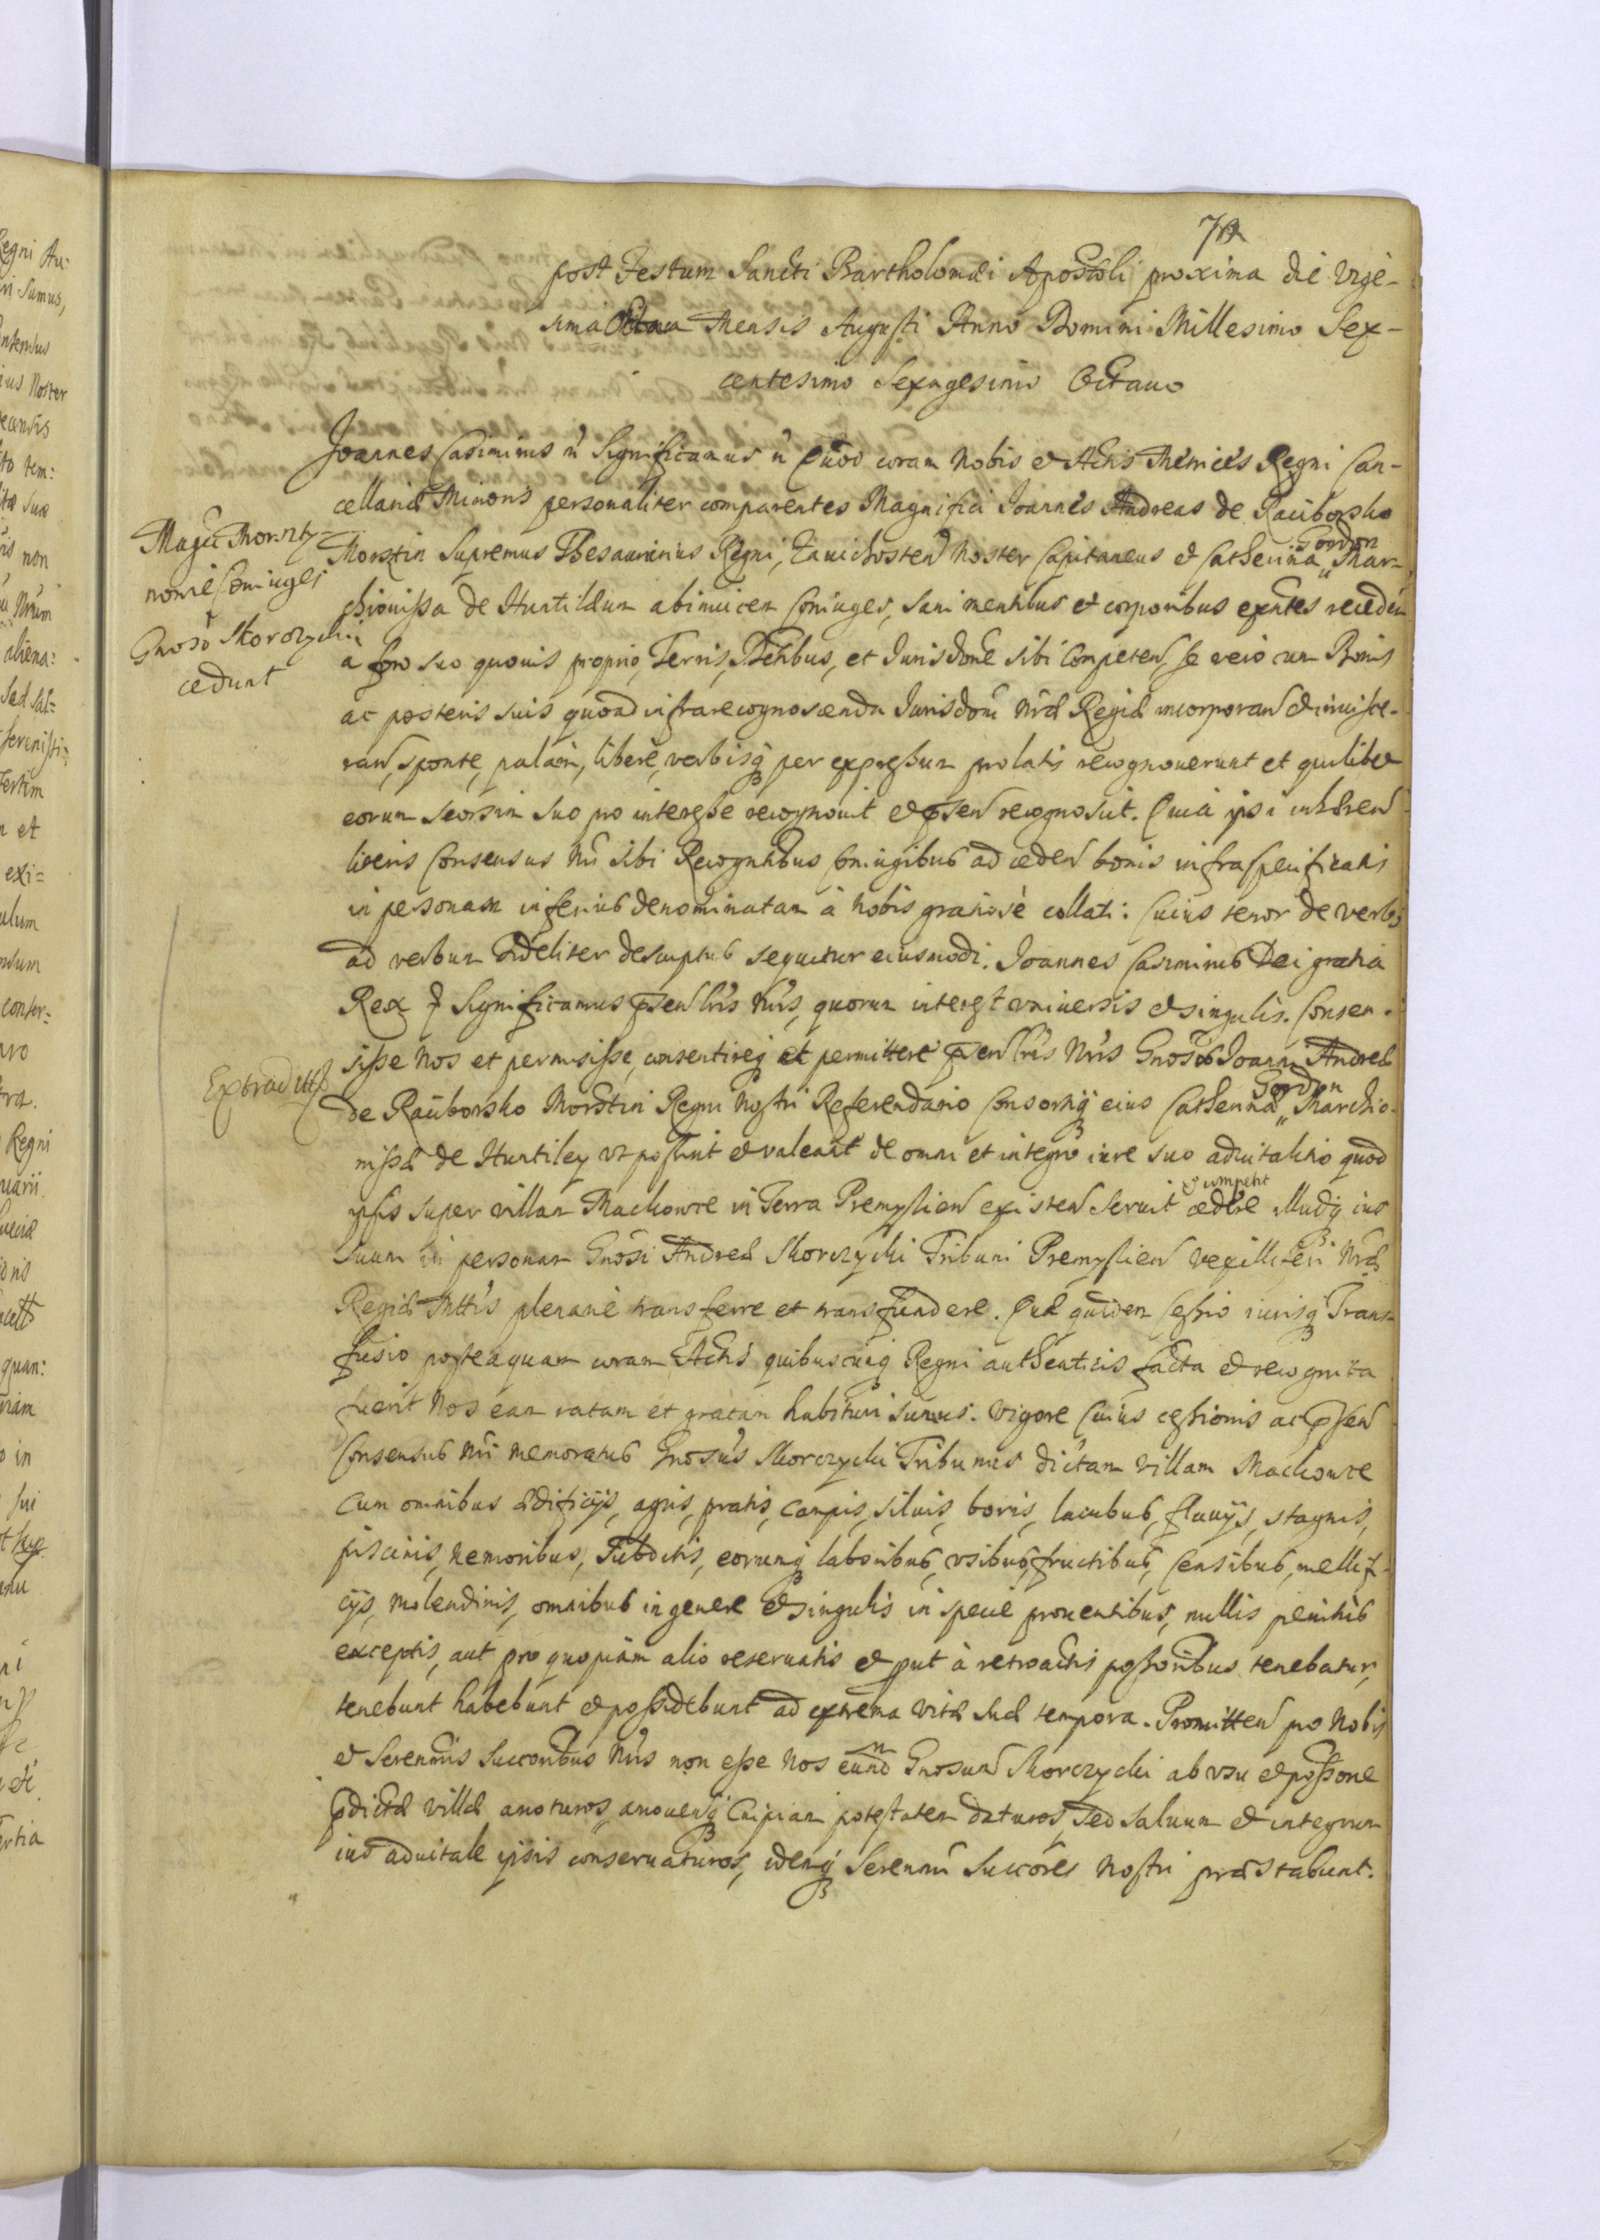 70
post Festum Sancti Bartholomæi Apostoli proxima die vige-
sima Octaua Mensis Augusti Anno Domini Millesimo Sex-
centesimo Sexagesimo Octauo
Joannes Casimirus Significamus Quod coram Nobis et Actis Metrices Regni Can-
cellariæ Minoris personaliter comparentes Magnifici Joannes Andreas de Raciborsko
Magci Morszty-
nowie Coniuges
Gnoso Skorczycki
cedunt
Morstin Supremus Thesaurarius Regni, Zawichosten Noster Capitaneus et Catherina Gordon Mar-
chionissa de Huntileun abinuicem Coniuges, sani mentibus et corporibus exntes receden
à foro suo quouis proprio, Terris, Ptetibus, et Jurisdone sibi Competen, se vero cum Bonis
ac posteris suis quoad infrarecognoscenda Jurisdoni Nræ Regiæ incorporan et inuisce-
ran, sponte, palam, libere, verbisq per expressum prolatis recognouerunt et quilibet
eorum seorsim suo pro interesse recognouit et psen recognoscit. Quia ipsi inhæren
literis Consensus Nri sibi Recogntibus Coniugibus ad ceden bonis infraspecificatis
in personam inferius denominatam à Nobis gratiosè collati: Cuius tenor de verbo
ad verbum fideliter descriptus sequitur eiusmodi. Joannes Casimirus Dei gratia
Rex Significamus psen lris Nris, quorum interest vniuersis et singulis. Consen-
sisse Nos et permisisse, consentireq et permittere psen lris Nris Gnoso Joanni Andreæ
Extradittæ
de Raciborsko Morstin Regni Nostri Referendario Consortiq eius Catherinæ Gordon Marchio-
nissæ de Huntiley vt possint et valeant de omni et integro iure suo aduitalitio quod
ipsis super villam Mackowce in Terra Premyslien existen seruit et competit cedere illudq ius
suum in personam Gnosi Andreæ Skorczycki Tribuni Premyslien vexilliferi Nræ
Regiæ Mttis plenariè transferre et transfundere. Quæ quidem Cessio iurisq Trans-
fusio posteaquam coram Actis quibuscunq Regni authenticis facta et recognita
fuerit Nos eam ratam et gratam habituri sumus. Vigore Cuius cessionis ac psen
Consensus Nri memoratus Gnosus Skorczycki Tribunus dictam villam Mackowce
cum omnibus ædificijs, agris, pratis, campis, siluis, boris, lacubus, fluuijs, stagnis,
piscinis, nemoribus, Subditis, eorumq laboribus, vsibus, fructibus, Censibus, mellifi-
cijs, Molendinis, omnibus in genere et singulis in specie prouentibus, nullis penitùs
exceptis, aut pro quopiam alio reseruatis et put à retroactis possoribus tenebatur,
tenebunt habebunt et possidebunt ad extrema vitæ suæ tempora. Promitten pro Nobis
et Serenmis Succoribus Nris non esse Nos eund Gnosum Skorczycki ab vsu et possone
pdictæ villæ amoturos, amouendiq Cuipiam potestatem daturos, sed saluum et integrum
ius aduitale ipsis conseruaturos, idemq Serenmi Succores Nostri præstabunt.